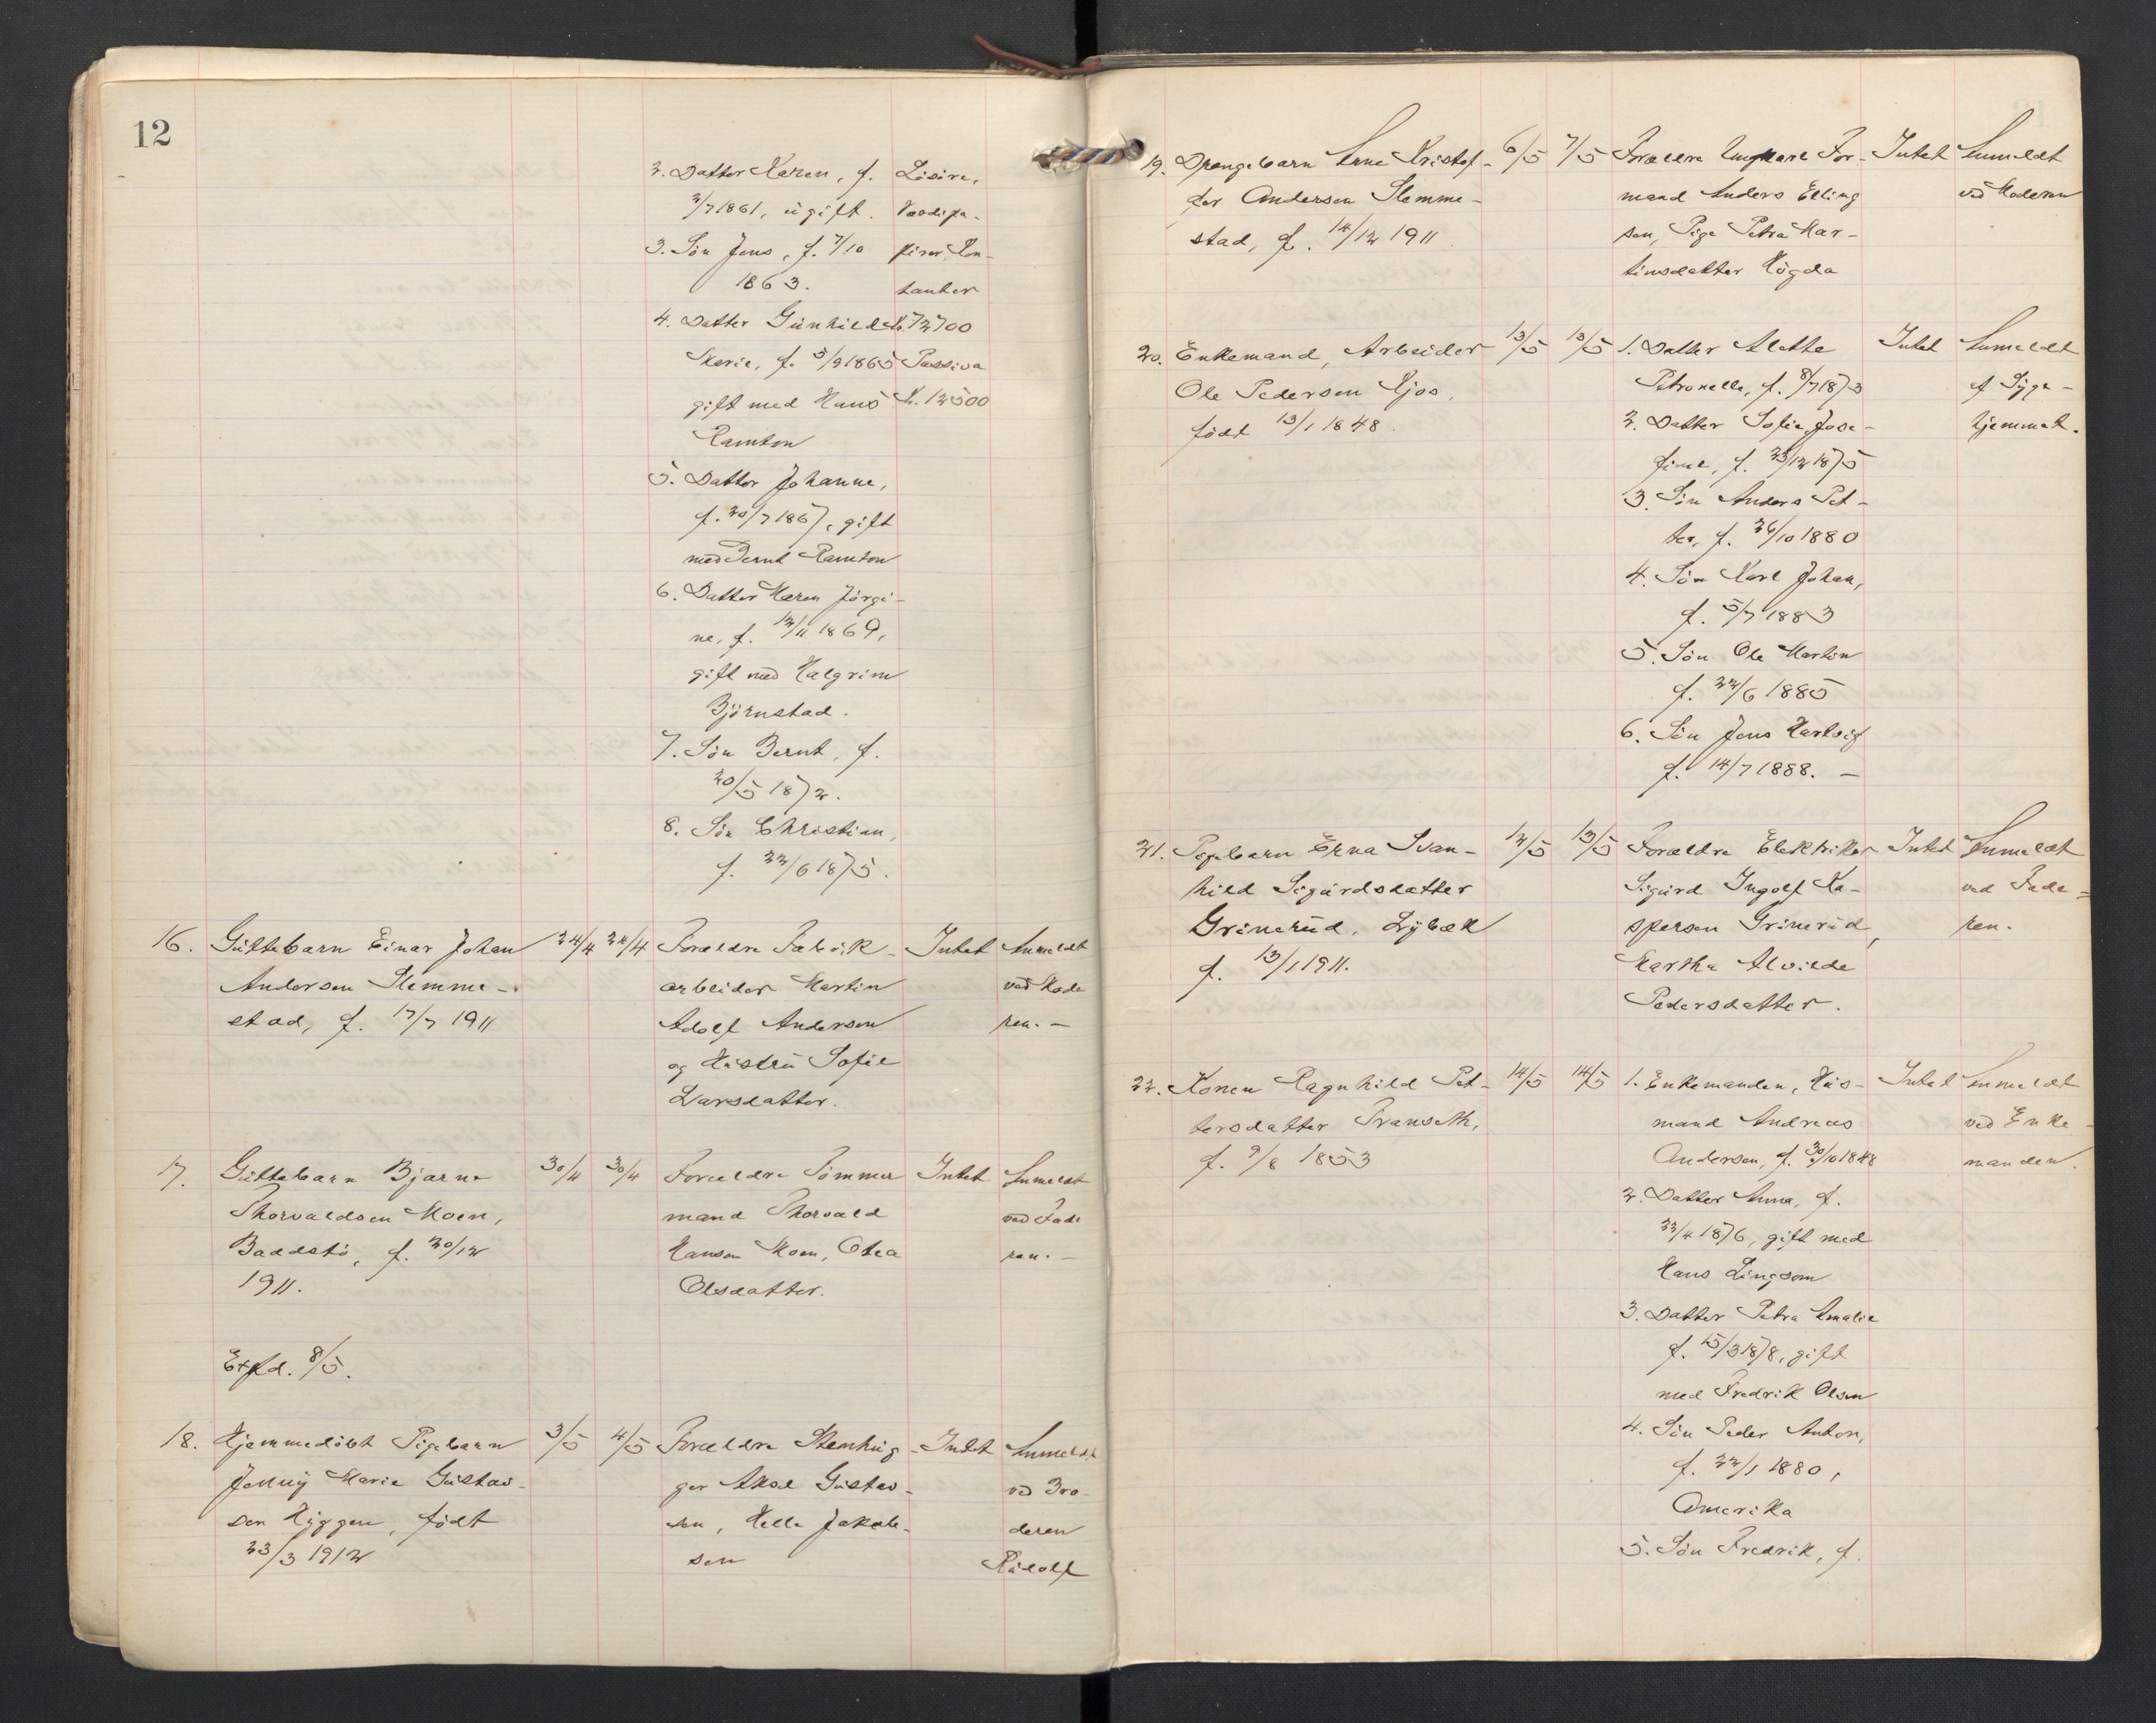 12
2. Datter Karen, f.
2/7 1861, ugift.
3. Søn Jens, f. 7/10
1863.
4. Datter Gunhilde
Marie, f. 5/9 1865
gift med Hans
Ramton
5. Datter Johanne,
f. 20/7 1867, gift
med Bernt Ramton
6. Datter Maren Jørgi-
ne, f. 12/11 1869,
gift med Halgrim
Bjørnstad.
7. Søn Bernt, f.
20/5 1872.
8. Søn Christian,
f. 22/6 1875.
Løsøre,
Værdipa-
pirer, Kon-
tanter
Kr. 72700
Passiva
Kr. 12500
16. Guttebarn Einar Johan
Andersen Slemme-
stad, f. 17/7 1911
24/4 24/4
Forældre Fabrik-
arbeider Martin
Adolf Andersen
og Hustru Sofie
Larsdatter.
Intet
Anmeldt
ved Mode
ren. -
17. Guttebarn Bjarne
Thorvaldsen Moen,
Baadstø, f. 20/12
1911.
30/4 30/4
Forældre Tømmer
mand Thorvald
Hansen Moen, Otea
Olsdatter.
Intet
Anmeldt
ved Fade
ren. -
Exfd. 8/5.
18. Hjemmedøbt Pigebarn
Jenny Marie Gustav-
sen Hyggen, født
23/3 1912
3/5 4/5
Forældre Stenhug-
ger Aksel Gustav-
sen, Helle Jakob-
sen
Intet
Anmeldt
ved Bro-
deren
Rudolf
19. Drengebarn Arne Kristof-
fer Andersen Slemme-
stad, f. 14/12 1911
6/5 7/5
Forældre Ungkarl For-
mand Anders Elling
sen, Pige Petra Mar-
tinsdatter Høgda
Intet
Anmeldt
ved Moderen
20. Enkemand, Arbeider
Ole Pedersen Kjos,
født 13/1 1848.
13/5 13/5
1. Datter Alette
Petronelle, f. 8/7 1873
2. Datter Sofie Jose-
fine, f. 23/12 1875
3. Søn Anders Pet-
ter, f. 26/10 1880
4. Søn Karl Johan,
f. 5/7 1883
5. Søn Ole Martin
f. 22/6 1885
6. Søn Jens Hartvig
f. 14/7 1888. -
Intet
Anmeldt
af Syge-
hjemmet.
21. Pigebarn Erna Svan-
hild Sigurdsdatter
Grinerud, Lybæk
f. 13/1 1911.
12/5 13/5
Forældre Elektriker
Sigurd Ingolf Ka-
spersen Grinerud,
Martha Alvilde
Pedersdatter.
Intet
Anmeldt
ved Fade=
ren.
22. Konen Ragnhild Pet-
tersdatter Franseth,
f. 9/8 1853
14/5 14/5
1. Enkemanden, Hus-
mand Andreas
Andersen, f. 30/10 1848
2. Datter Anna, f.
22/4 1876, gift med
Hans Lingsom
3. Datter Petra Amalie
f. 15/3 1878, gift
med Fredrik Olsen
4. Søn Peder Anton,
f. 22/1 1880,
Amerika
5. Søn Fredrik, f.
Intet
Anmeldt
ved Enke-
manden.